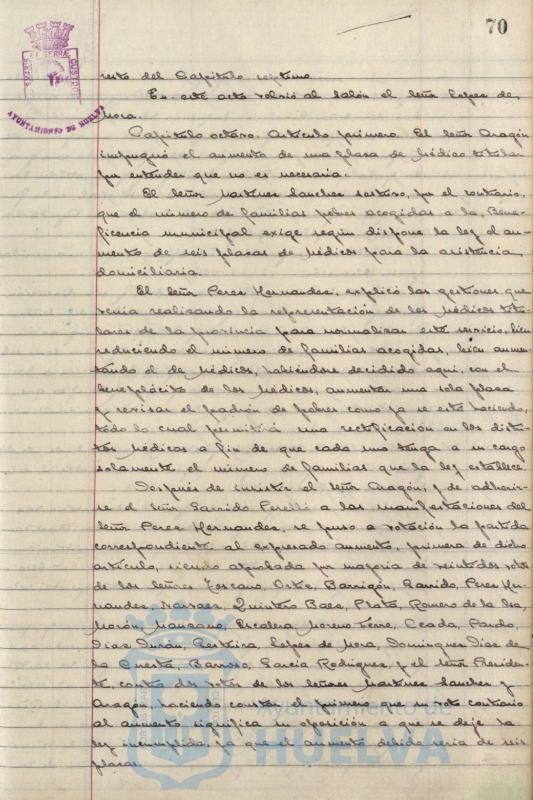 70
AYUNTAMIENTO DE HUELVA
resto del Capitulo septimo.
En este acto volvió al salón el Señor Lopez de
Mora.
Capitulo octavo. Articulo primero. El Señor Aragón
impugnó el aumento de una plaza de Médico titular
por entender que no es necesaria.
El Señor Martinez Sanchez sostuvo, por el contrario,
que el número de familias pobres acogidas a la Bene-
ficencia municipal exige según dispone la ley el au-
mento de seis plazas de Médicos para la asistencia
domiciliaria.
El Señor Perez Hernandez, explicó las gestiones que
venia realizando la representación de los Médicos titu-
lares de la provincia para normalizar este servicio, bien
reduciendo el número de familias acogidas, bien aumen-
tando el de Médicos, habiéndose decidido aqui, con el
beneplácito de los Médicos, aumentar una sola plaza
y revisar el padrón de pobres como ya se está haciendo,
todo lo cual permitirá una rectificación en los distri-
tos Médicos a fin de que cada uno tenga a su cargo
solamente el número de familias que la ley establece.
Después de insistir el Señor Aragón, y de adherir-
se el Señor Garrido Perelló a las manifestaciones del
Señor Perez Hernandez, se puso a votación la partida
correspondiente al expresado aumento, primera de dicho
articulo, siendo aprobada por mayoria de veintidos votos
de los Señores Toscano, Ortiz, Barrigón, Garrido, Perez Her-
nandez, Narvaez, Quintero Baez, Prats, Romero de la
Morón, Manzano, Escalera, Moreno, Terré, Pardo,
Diaz Durán, Lopez de Mora, Dominguez, Diaz de
la Cuesta, Barroso, Garcia Rodriguez, y el Señor Presiden-
te, contra dos votos de los Señores Martinez Sanchez y
Aragón, haciendo constar el primero que su voto contrario
al aumento significa su oposición a que se deje la
ley incumplida, ya que el aumento debido seria de seis
plazas.
Ayuntamiento de
HUELVA